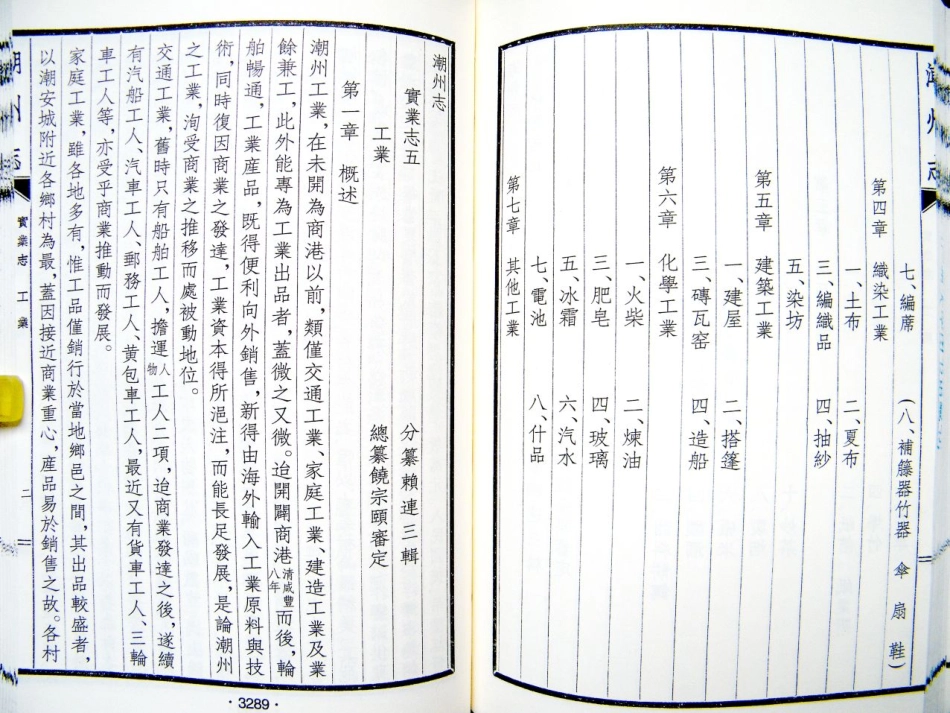 潮州志
七、編蓆　（八、補籐器竹器　傘　扇　鞋）
第四章　織染工業
一、土布　二、夏布
三、編織品　四、抽紗
五、染坊
第五章　建築工業
一、建屋　二、搭篷
三、磚瓦窑　四、造船
第六章　化學工業
一、火柴　二、煉油
三、肥皂　四、玻璃
五、冰霜　六、汽水
七、電池　八、什品
第七章　其他工業
潮州志
實業志五　分纂賴連三輯
工業　總纂饒宗頤審定
第一章　概述
潮州工業，在未開為商港以前，類僅交通工業、家庭工業、建造工業及業
餘兼工，此外能專為工業出品者，蓋微之又微。迨開闢商港清咸豐八年而後，輪
舶暢通，工業產品，既得便利向外銷售，新得由海外輸入工業原料與技
術，同時復因商業之發達，工業資本得所浥注，而能長足發展，是論潮州
之工業，洵受商業之推移而處被動地位。
交通工業，舊時只有船舶工人，擔運人物工人二項，迨商業發達之後，遂續
有汽船工人、汽車工人、郵務工人、黄包車工人，最近又有貨車工人、三輪
車工人等，亦受乎商業推動而發展。
家庭工業，雖各地多有，惟工品僅銷行於當地鄉邑之間，其出品較盛者，
以潮安城附近各鄉村為最，蓋因接近商業重心，產品易於銷售之故。各村
潮州志
實業志　工業
二
·3289·